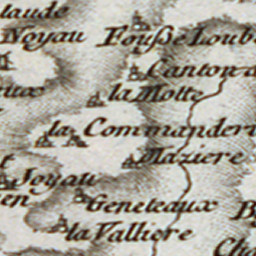 laude
Noyau
Fousse Loub
Canton a
aux
la Motte
la Commanderi
Maziere
Joyau
en
Geneteaux
B
la Valliere
Cha